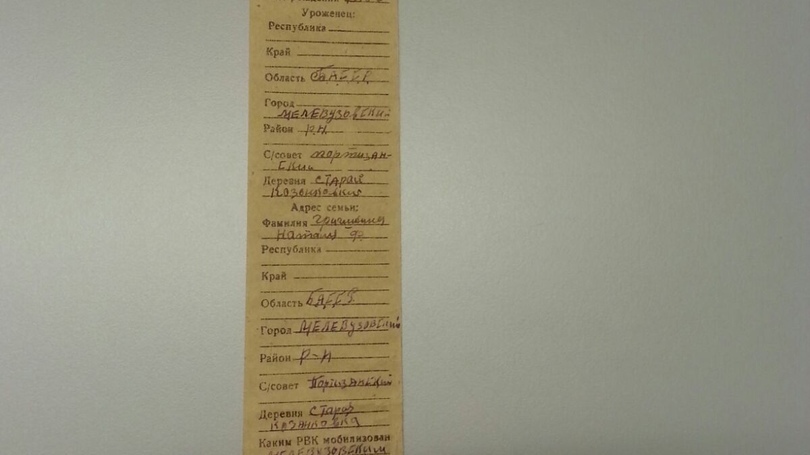 Уроженец:
Республика
Край
Область БАССР
Город
Мелевузовский
Район р-н
С/совет портизан-
ский
Деревня Старой
Адрес семьи:
Фамилия
Наталя
Республика
Край
Область БАССР
Город Мелевузовский
Район р-н
С/совет Портизанский
Деревня Старой
Казанковка
Каким РВК мобилизован
Мелевузовским